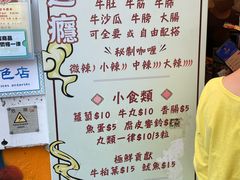 過癮
牛肚 牛筋 牛腩
牛沙瓜 牛膀 大腸
可全要 或 自由配搭
秘制咖喱
微辣) 小辣)) 中辣))) 大辣))))
小食類
蘿蔔$10 牛丸$10 香腸$5
魚蛋$5 腐皮響鈴$5
丸類一律$10/3粒
極鮮貢獻
牛柏葉$15 魷魚$15
色店